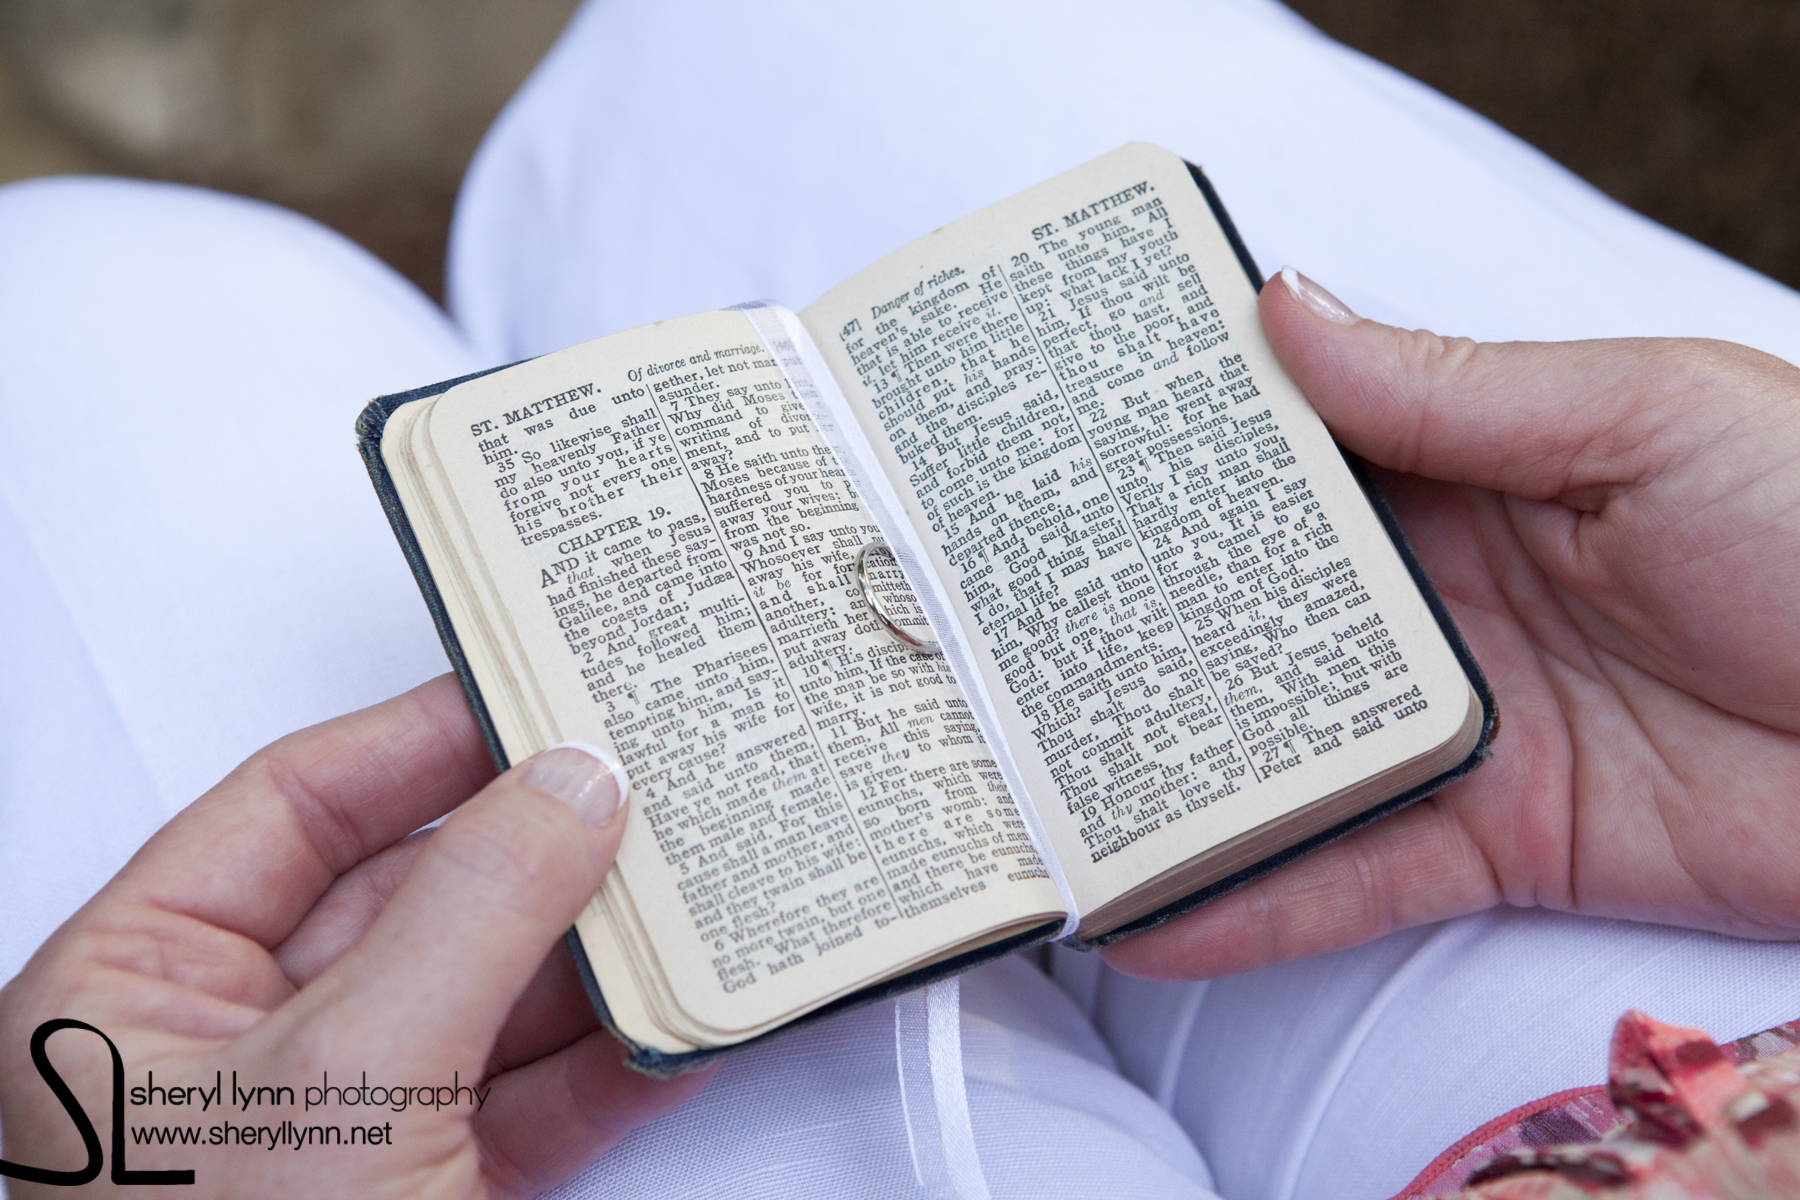 ST. MATTHEW.
Of divorce and marriage.
that was due unto
him.
35 So likewise shall
my heavenly Father
do also unto you, if ye
from your hearts
forgive not every one
his brother their
trespasses.
CHAPTER 19.
AND it came to pass,
that when Jesus
had finished these say-
ings, he departed from
Galilee, and came into
the coasts of Judæa
beyond Jordan;
2 And great multi-
tudes followed him;
and he healed them
there.
3 ¶ The Pharisees
also came unto him,
tempting him, and say-
ing unto him, Is it
lawful for a man to
put away his wife for
every cause?
4 And he answered
and said unto them,
Have ye not read, that
he which made them at
the beginning made
them male and female.
5 And said, For this
cause shall a man leave
father and mother, and
shall cleave to his wife:
and they twain shall be
one flesh?
6 Wherefore they are
no more twain, but one
flesh. What therefore
God hath joined to-
gether, let not man put
asunder.
7 They say unto him,
Why did Moses
command to give
writing of divor
ment, and to put her
away?
8 He saith unto the
Moses because of t
hardness of your hear
suffered you to p
away your wives: b
from the beginning
was not so.
9 And I say unto you
Whosoever shall pu
away his wife,
it be for for cation
and shall marry
another, co mitteth
adultery: an whoso
marrieth her which is
put away doth commit
adultery.
10 ¶ His discip
unto him, If the case of
the man be so with his
wife, it is not good to
marry.
11 But he said unto
them, All men cannot
receive this saying,
save they to whom it
is given.
12 For there are some
eunuchs, which were
so born from their
mother's womb: and
there are some
eunuchs, which were
made eunuchs of men:
and there be eunuchs
which have made
themselves eunuchs
[47] Danger of riches.
ST. MATTHEW.
for the kingdom of
heaven's sake. He
that is able to receive
it, let him receive it.
13 ¶ Then were there
brought unto him little
children, that he
should put his hands
on them, and pray:
and the disciples re-
buked them.
14 But Jesus said,
Suffer little children,
and forbid them not,
to come unto me: for
of such is the kingdom
of heaven.
15 And he laid his
hands on them, and
departed thence.
16 ¶ And, behold, one
came and said unto
him, Good Master,
what good thing shall
I do, that I may have
eternal life?
17 And he said unto
him, Why callest thou
me good? there is none
good but one, that is,
God: but if thou wilt
enter into life, keep
the commandments.
18 He saith unto him,
Which? Jesus said,
Thou shalt do no
murder, Thou shalt
not commit adultery,
Thou shalt not steal,
Thou shalt not bear
false witness,
19 Honour thy father
and thy mother: and,
Thou shalt love thy
neighbour as thyself.
20 The young man
saith unto him, All
these things have I
kept from my youth
up: what lack I yet?
21 Jesus said unto
him, If thou wilt be
perfect, go and sell
that thou hast, and
give to the poor, and
thou shalt have
treasure in heaven:
and come and follow
me.
22 But when the
young man heard that
saying, he went away
sorrowful: for he had
great possessions.
23 ¶ Then said Jesus
unto his disciples,
Verily I say unto you,
That a rich man shall
hardly enter into the
kingdom of heaven.
24 And again I say
unto you, It is easier
for a camel to go
through the eye of a
needle, than for a rich
man to enter into the
kingdom of God.
25 When his disciples
heard it, they were
exceedingly amazed,
saying, Who then can
be saved?
26 But Jesus beheld
them, and said unto
them, With men this
is impossible; but with
God all things are
possible.
27 ¶ Then answered
Peter and said unto
SL
sheryl lynn photography
www.sheryllynn.net